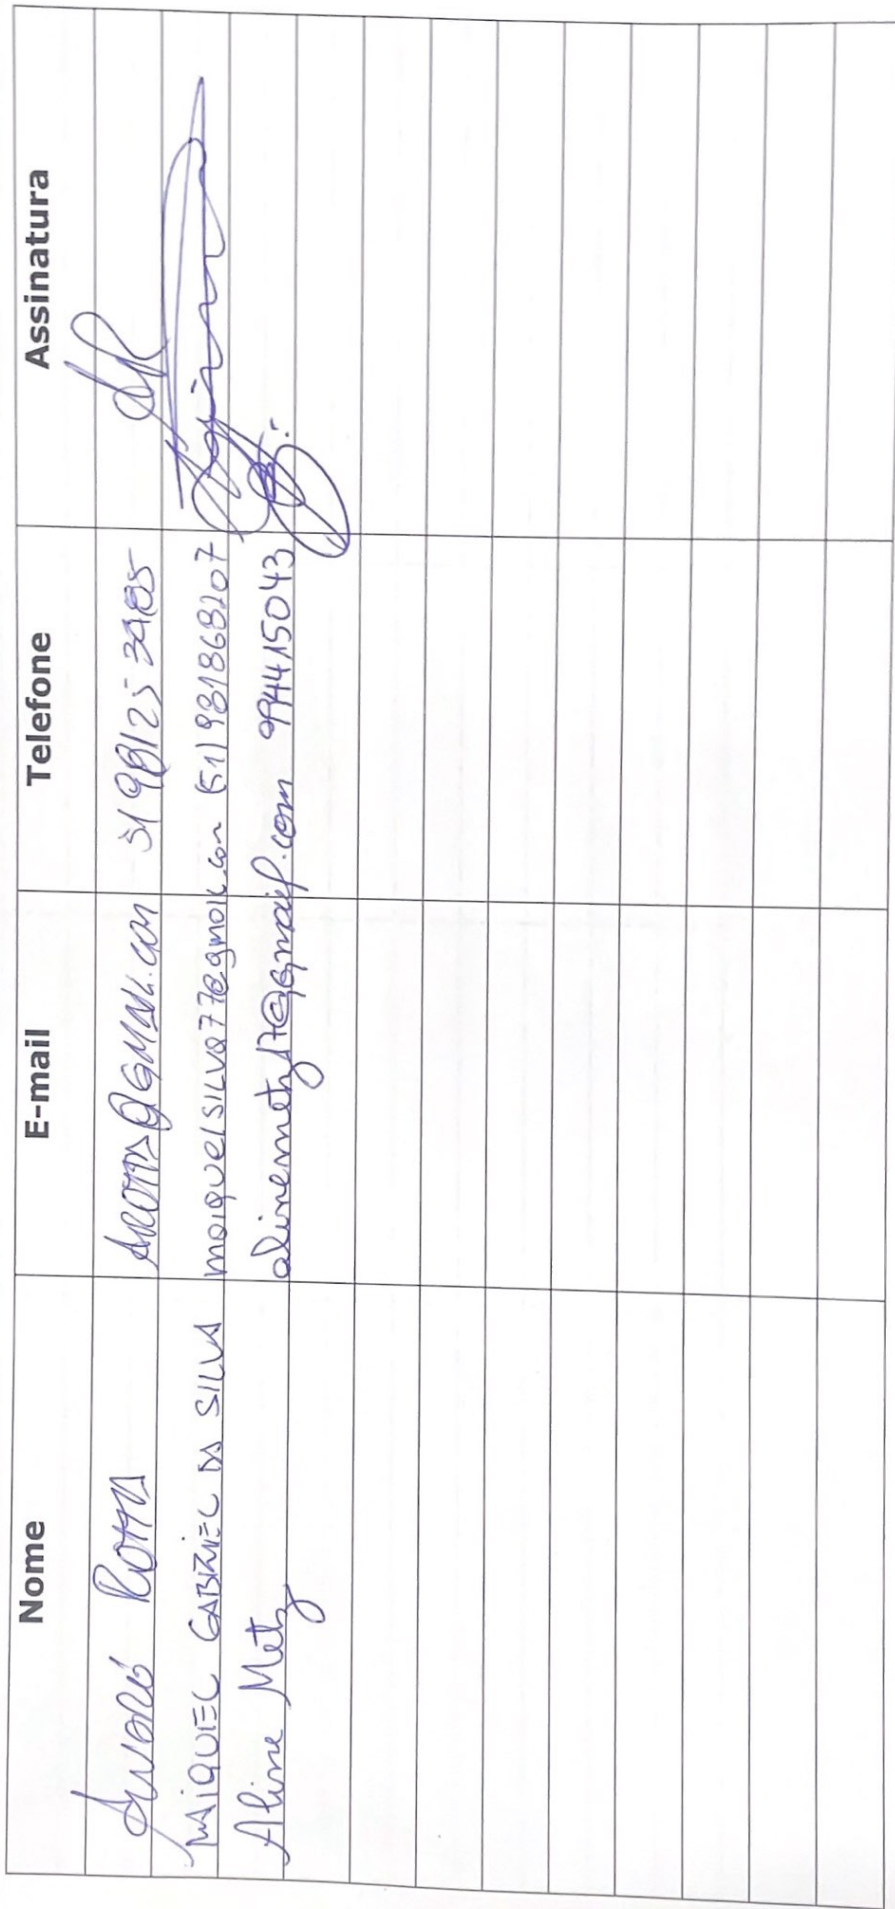 Nome E-mail Telefone Assinatura
André Rotta ARotta@gmail.com 51 98125 3485
MAIQUEL GABRIEL DA SILVA maiquelsilva77@gmail.com (51) 981868207
Aline Metz alinemetz17@gmail.com 994415043